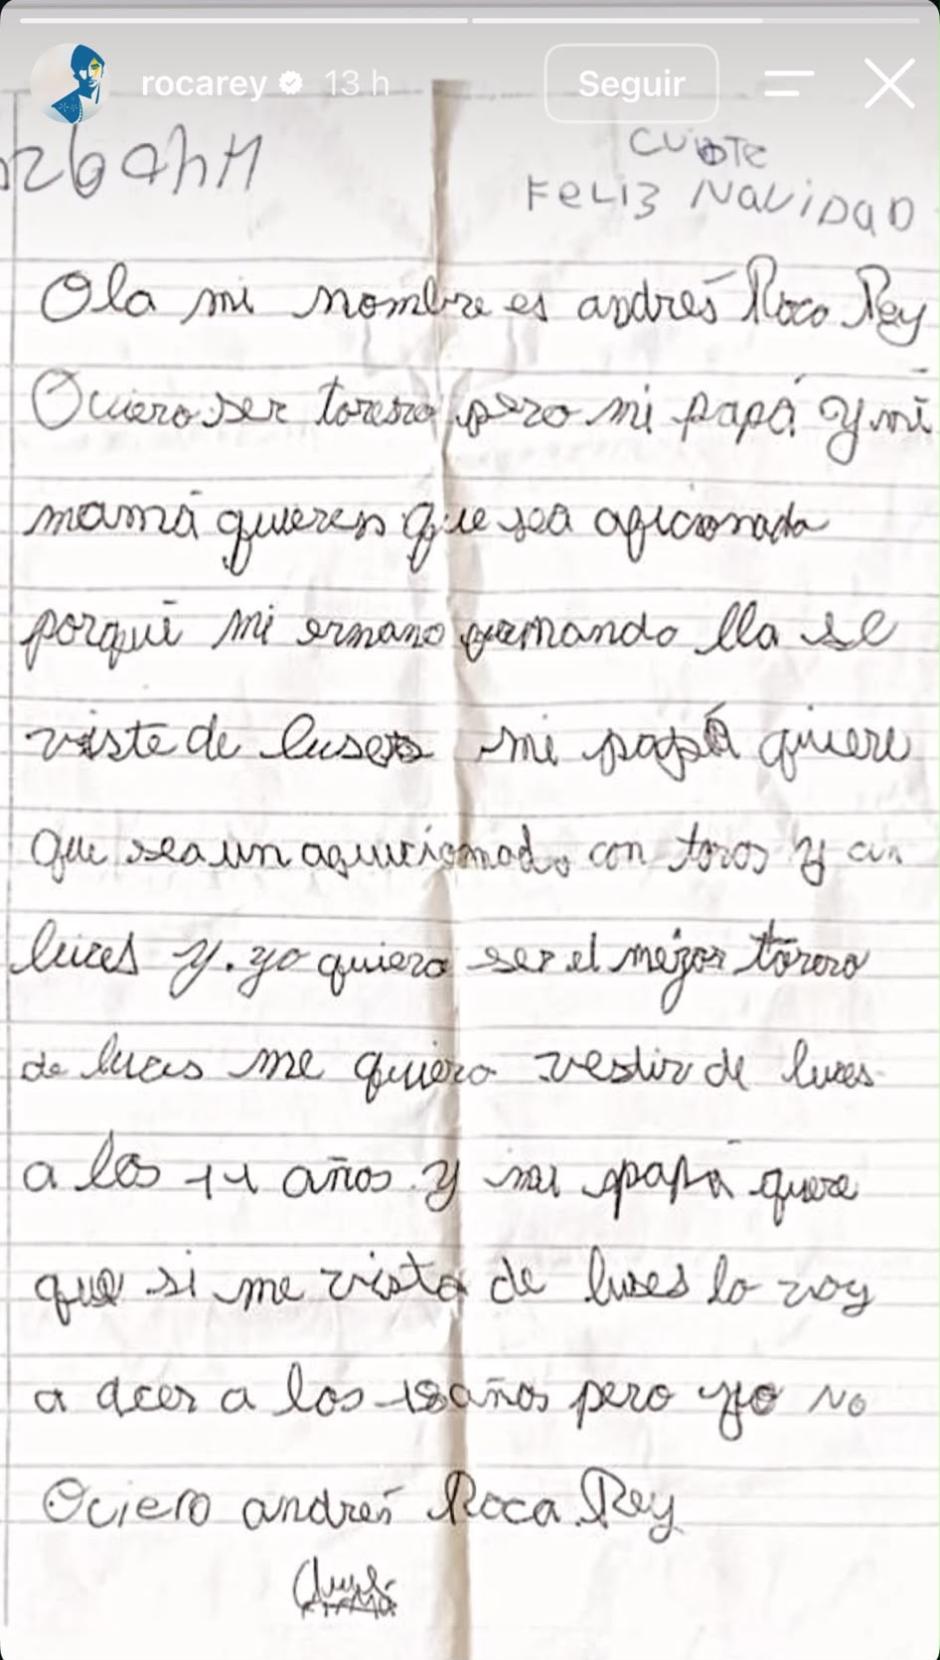 rocarey 13 h Seguir
CUIDTE
FELIZ NAVIDAD
Ola mi nombre es andrés Roca Rey
Quiero ser torero pero mi papá y mi
mamá quieren que sea aficionado
porque mi ermano fernando lla se
viste de luses mi papá quiere
que sea un aficionado con toros y con
luces y. yo quiero ser el mejor torero
de luces me quiero vestir de luces
a los 11 años y mi papá quere
que si me vista de luses lo voy
a acer a los 18 años pero yo no
Quiero andrés Roca Rey